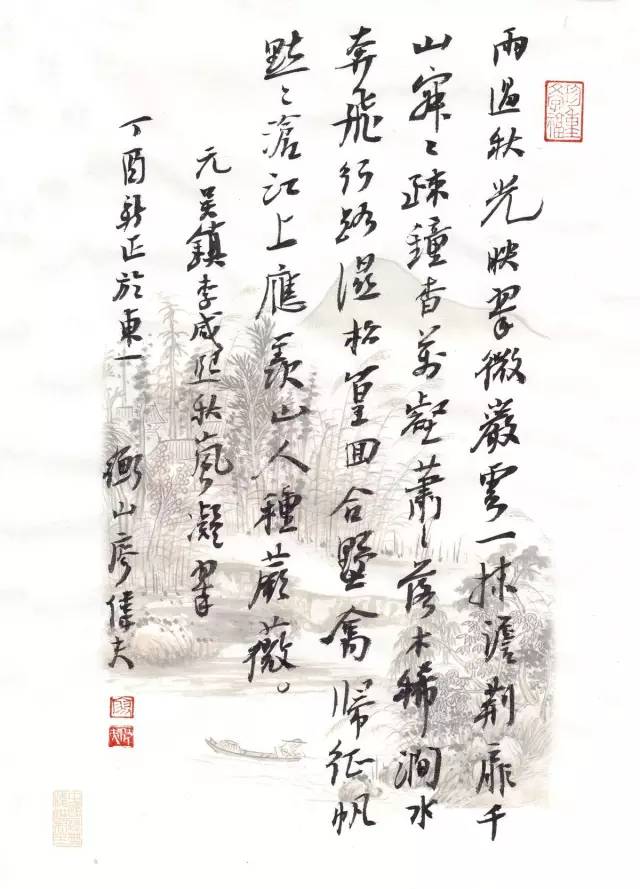 雨過秋光映翠微巖雲一抹澹荆扉千
山寂〻疎鐘杳萬壑蕭〻落木稀澗水
奔飛行路濕松篁回合墅禽歸征帆
點〻滄江上應羨山人種蕨薇。
元吴鎮李咸熙秋嵐凝翠
丁酉新正於東一
衡山廖偉夫